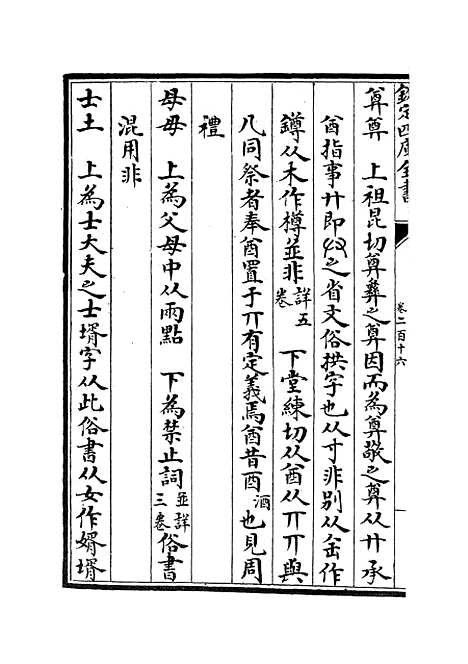 欽定四庫全書
卷二百十六
尊奠　上祖昆切尊彝之尊因而為尊敬之尊从廾承
酋指事廾即𠬞之省文俗拱字也从寸非别从缶作
罇从木作樽並非詳五卷　下堂練切从酋从丌丌與
几同祭者奉酋置于丌有定義焉酋昔酉酒也見周
禮
母毋　上為父母中从兩點　下為禁止詞並詳三卷俗書
混用非
士土　上為士大夫之士壻字从此俗書从女作婿壻